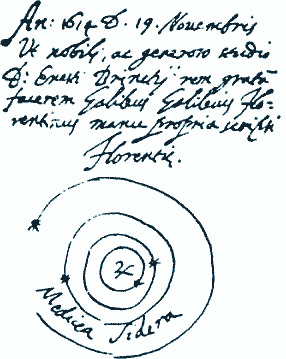 An: 1614 D. 19. Novembris
Ut nobili, ac generoso studio
D: Ernesti Brinckij rem gratã
facerem Galileus Galileius Flo-
rentinus manu propria scripsi
Florentiæ.
♃
Medicea Sidera